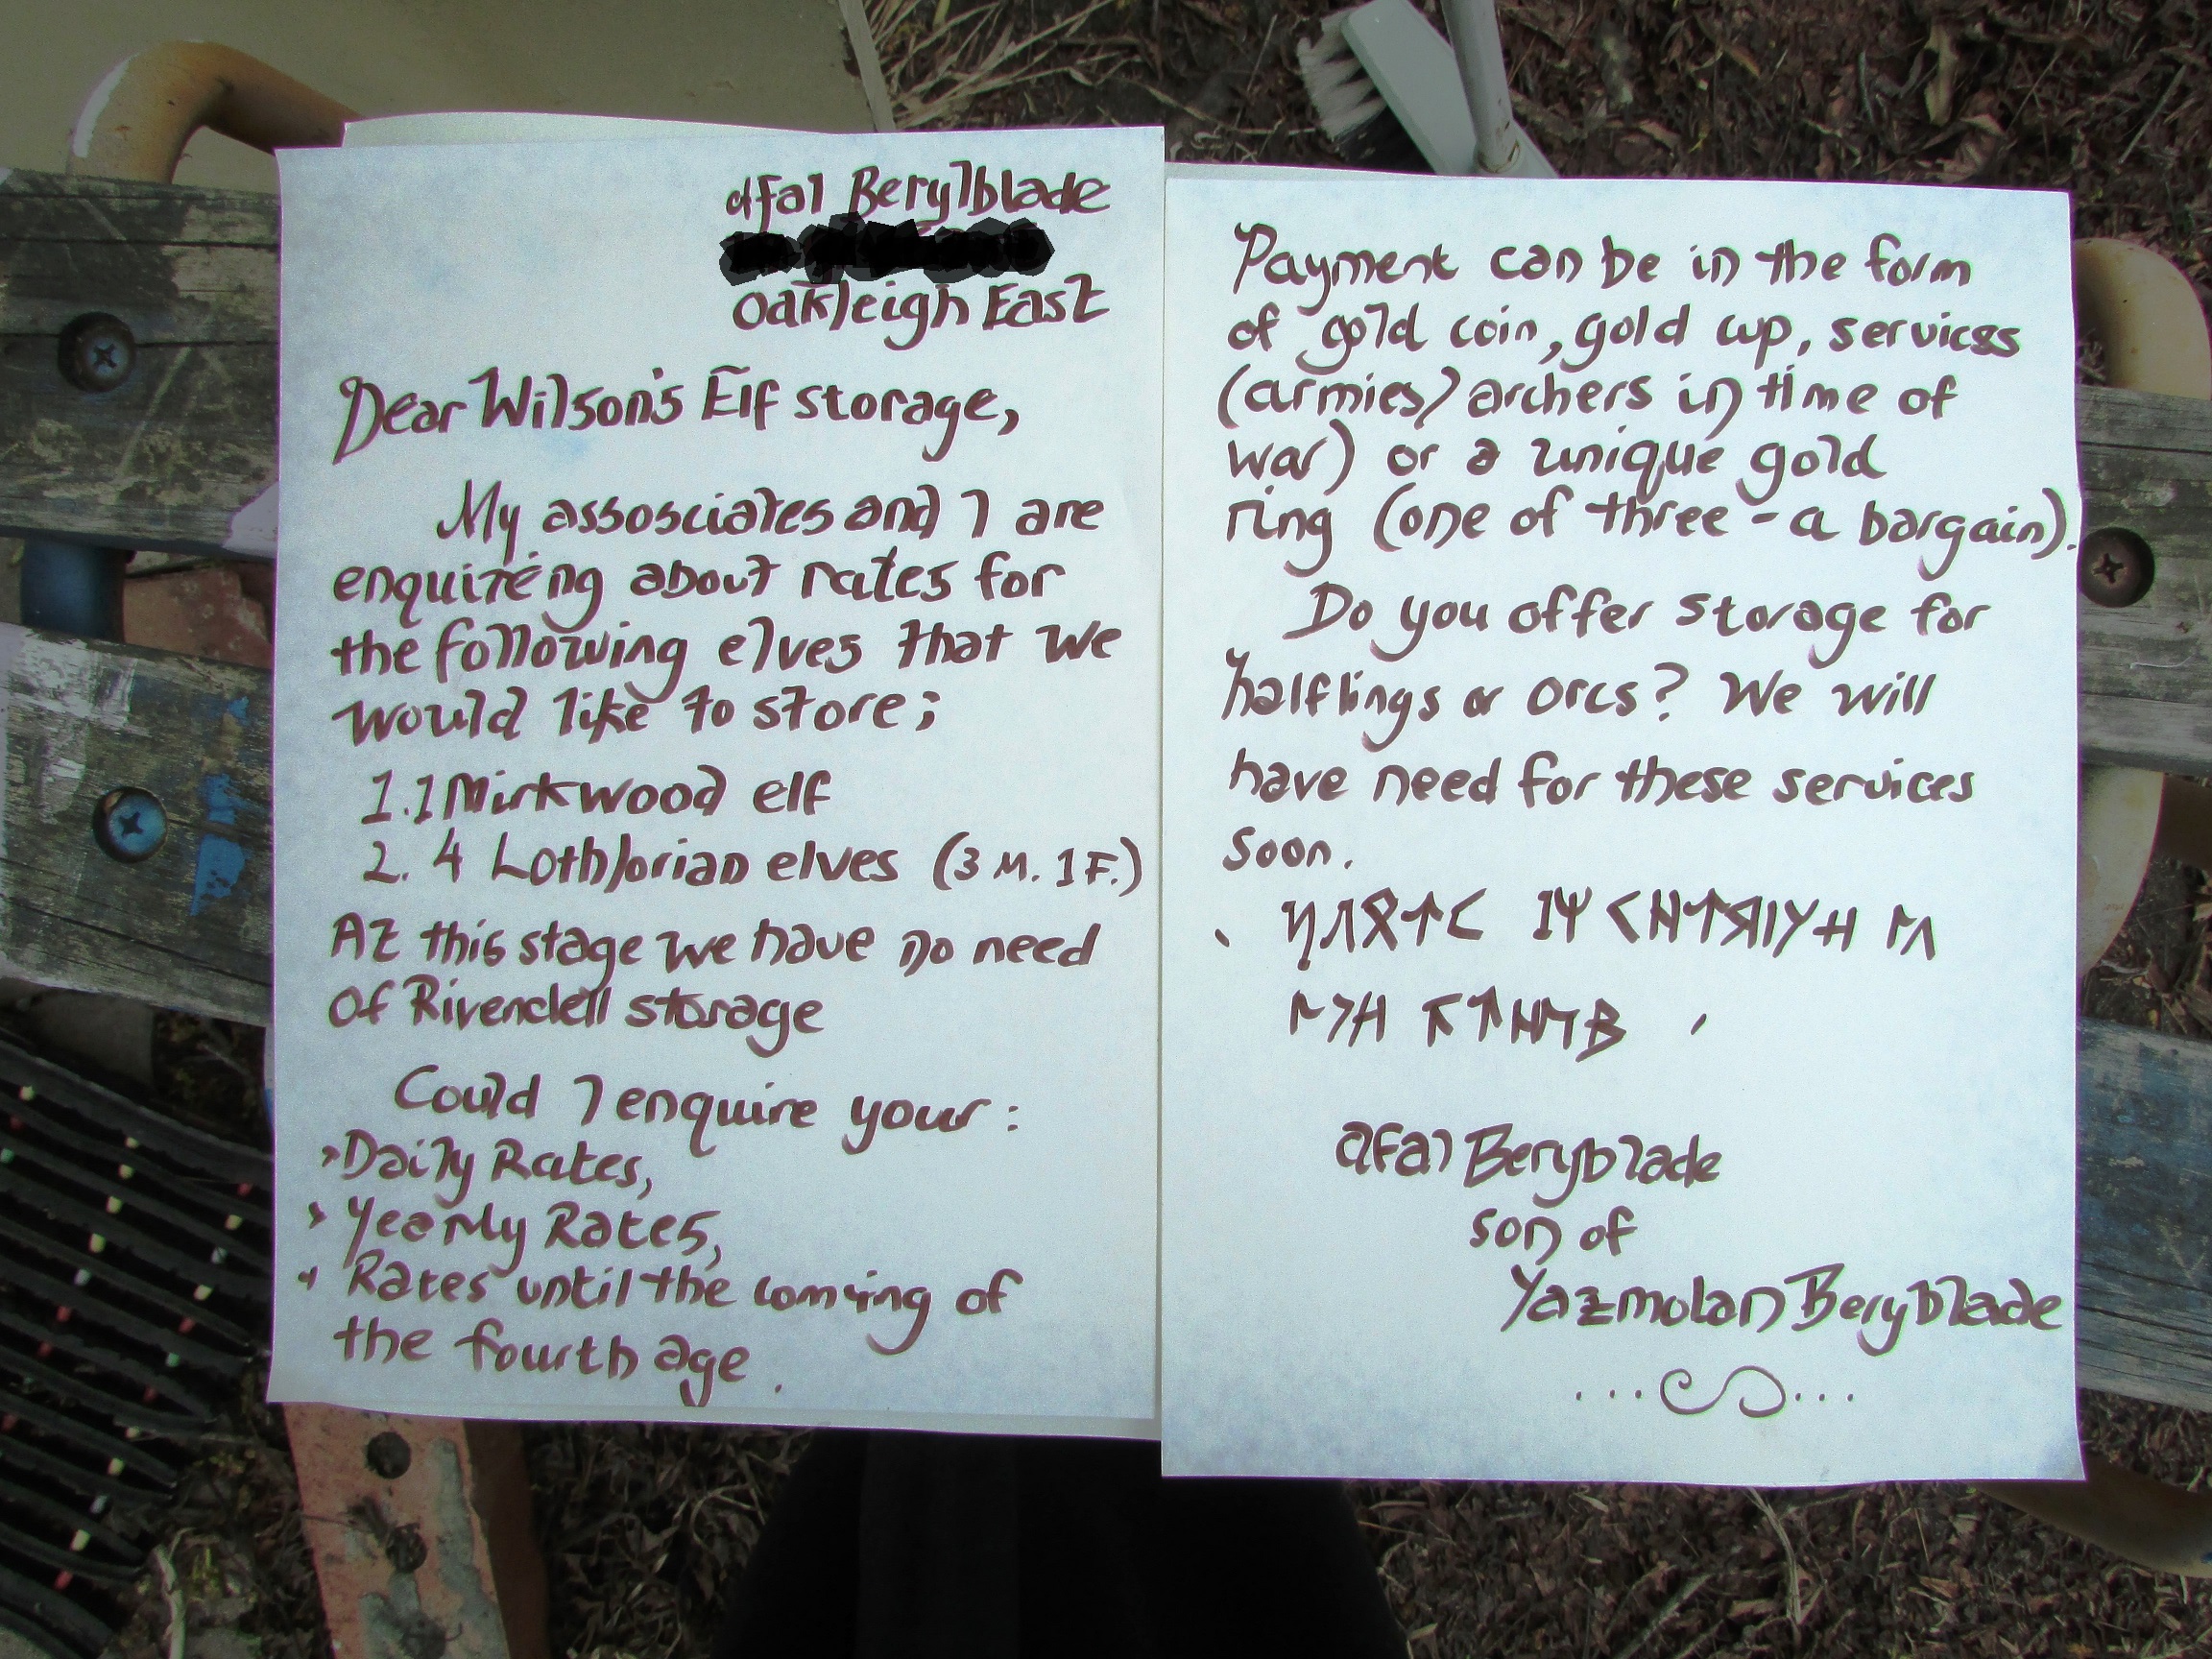 afal Berylblade
Oakleigh East
Dear Wilson's Elf storage,
My assosciates and I are
enquireng about rates for
the following elves that we
would like to store;
1. 1 Mirkwood elf
2. 4 Lothlorian elves (3 M. 1 F.)
At this stage we have no need
Of Rivendell storage
Could I enquire your:
Daily Rates,
Yearly Rates,
Rates until the coming of
the fourth age.
Payment can be in the form
of gold coin, gold cup, services
(armies/archers in time of
war) or a unique gold
ring (one of three - a bargain).
Do you offer storage for
halflings or orcs? We will
have need for these services
soon.
afal Beryblade
son of
Yazmolan Beryblade